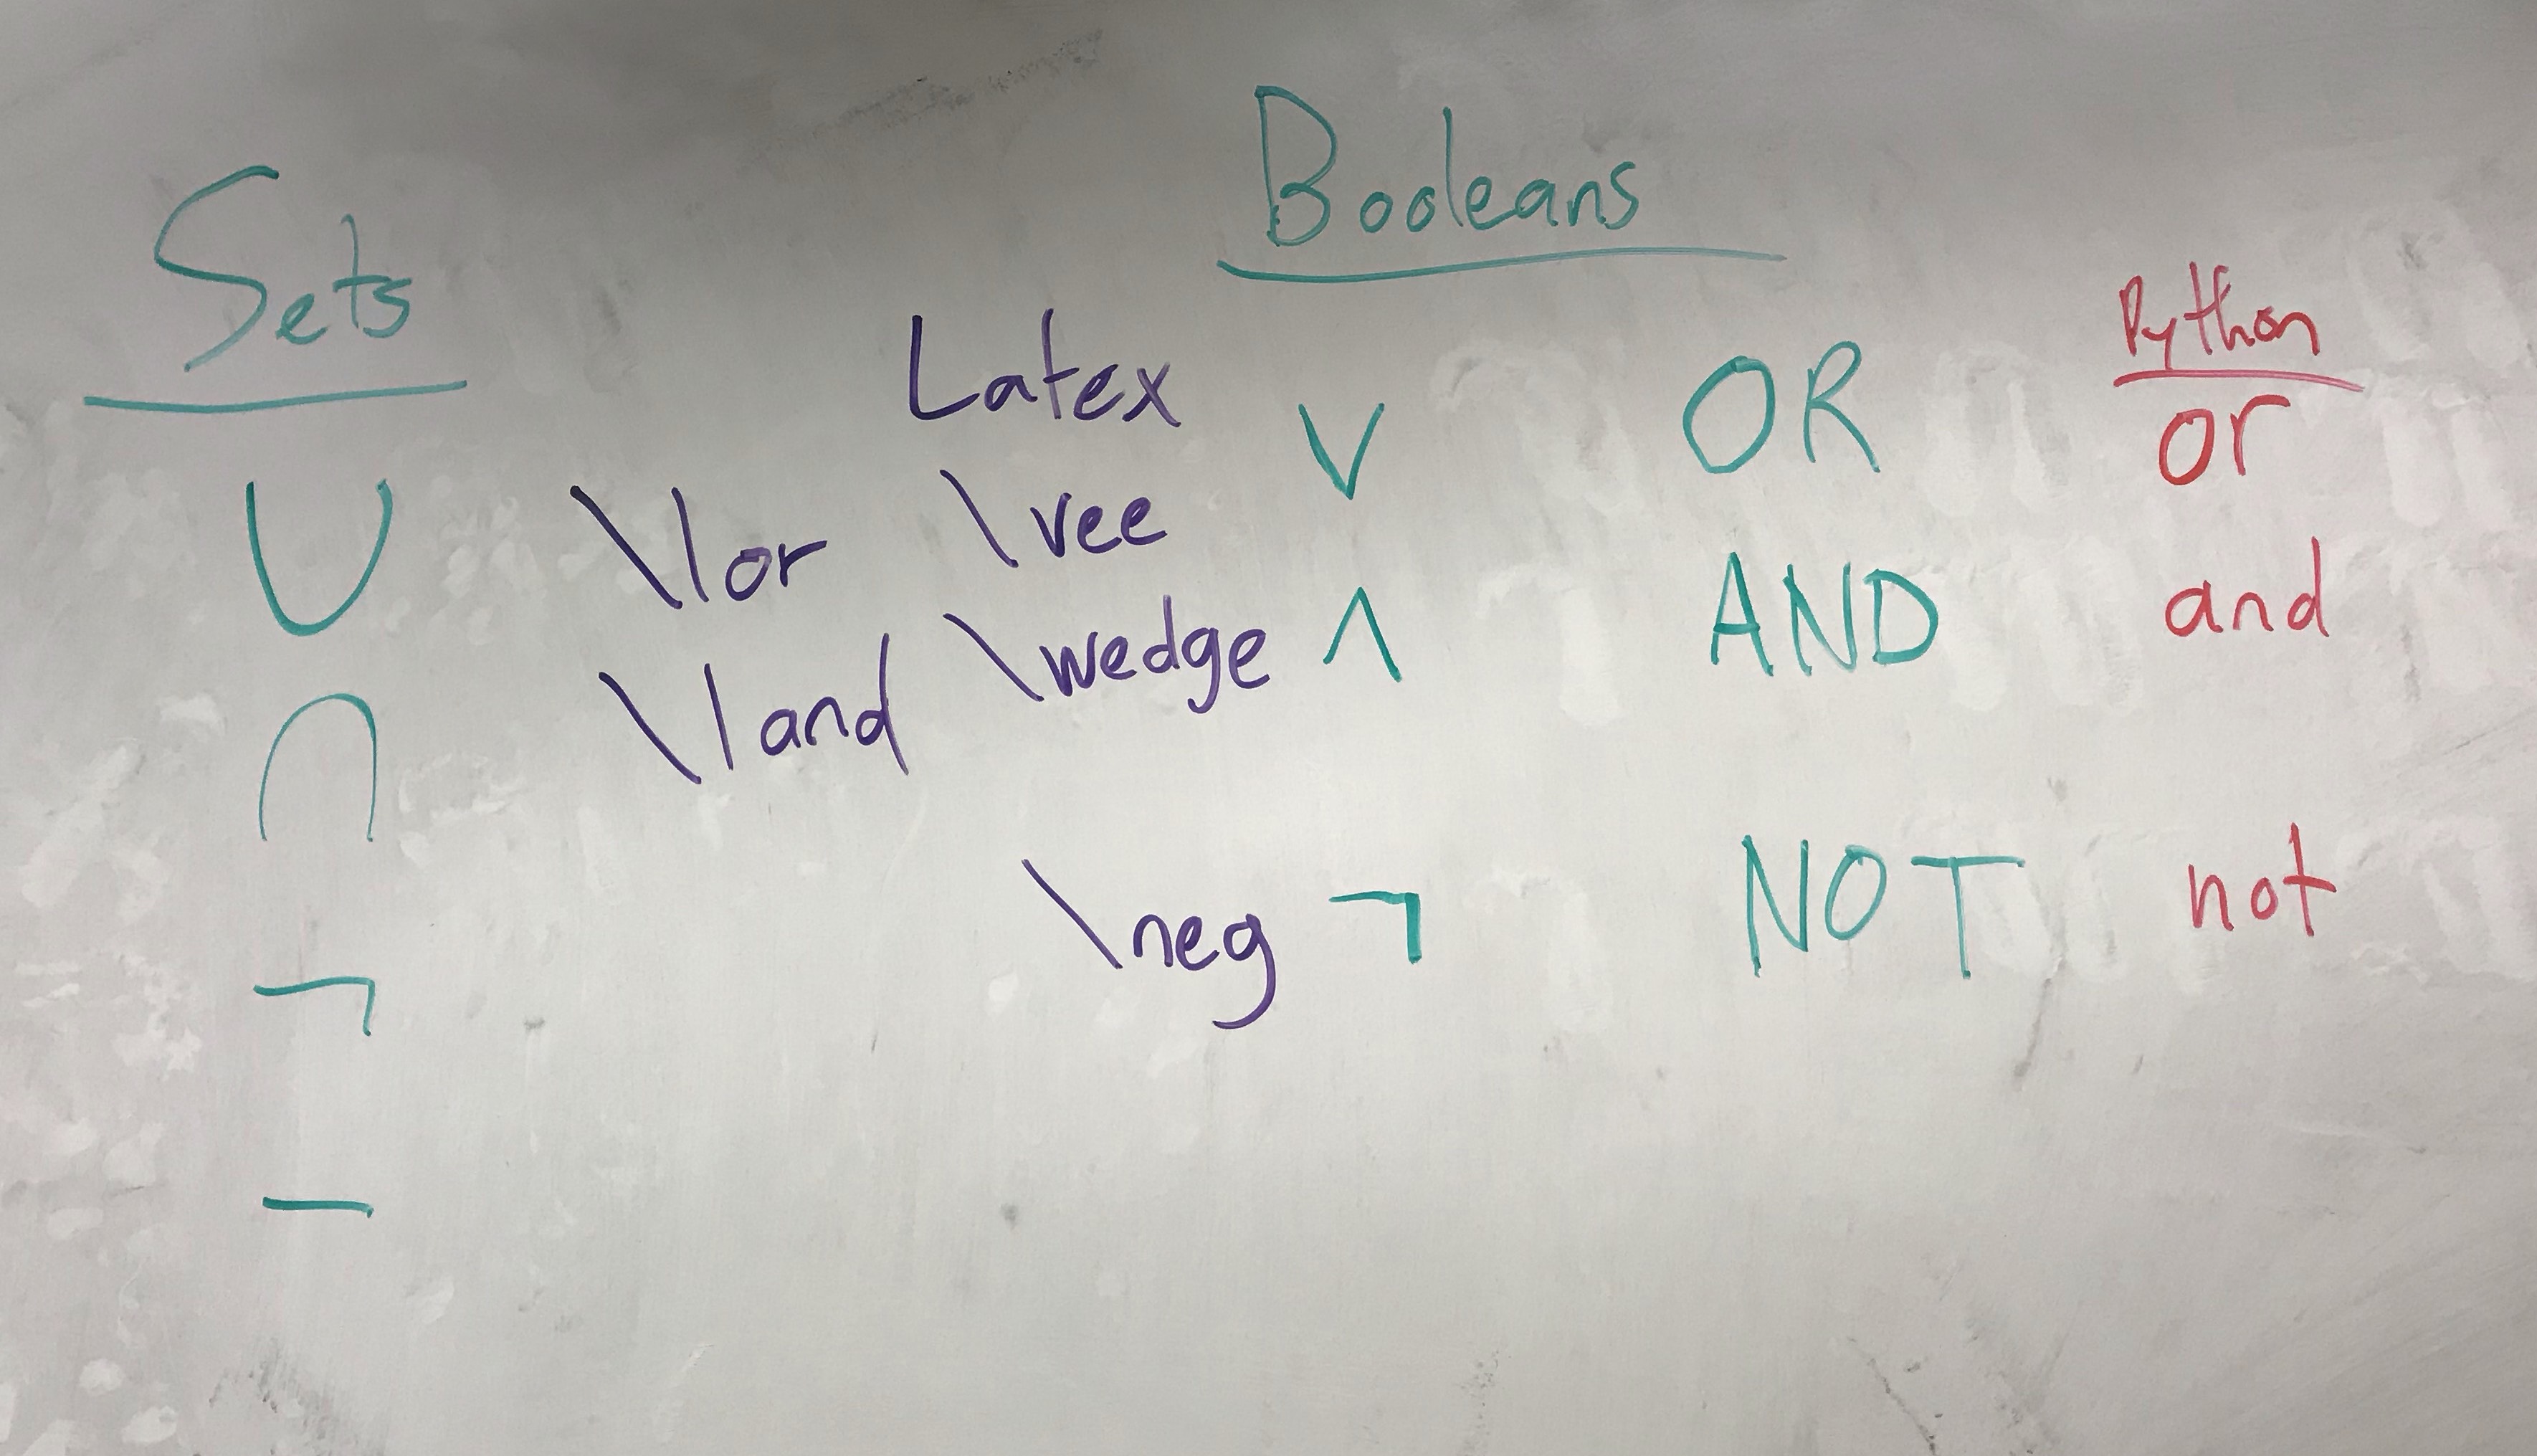 Sets
Booleans
Latex
Python
∪ \lor \vee ∨ OR or
∩ \land \wedge ∧ AND and
¬ \neg ¬ NOT not
−